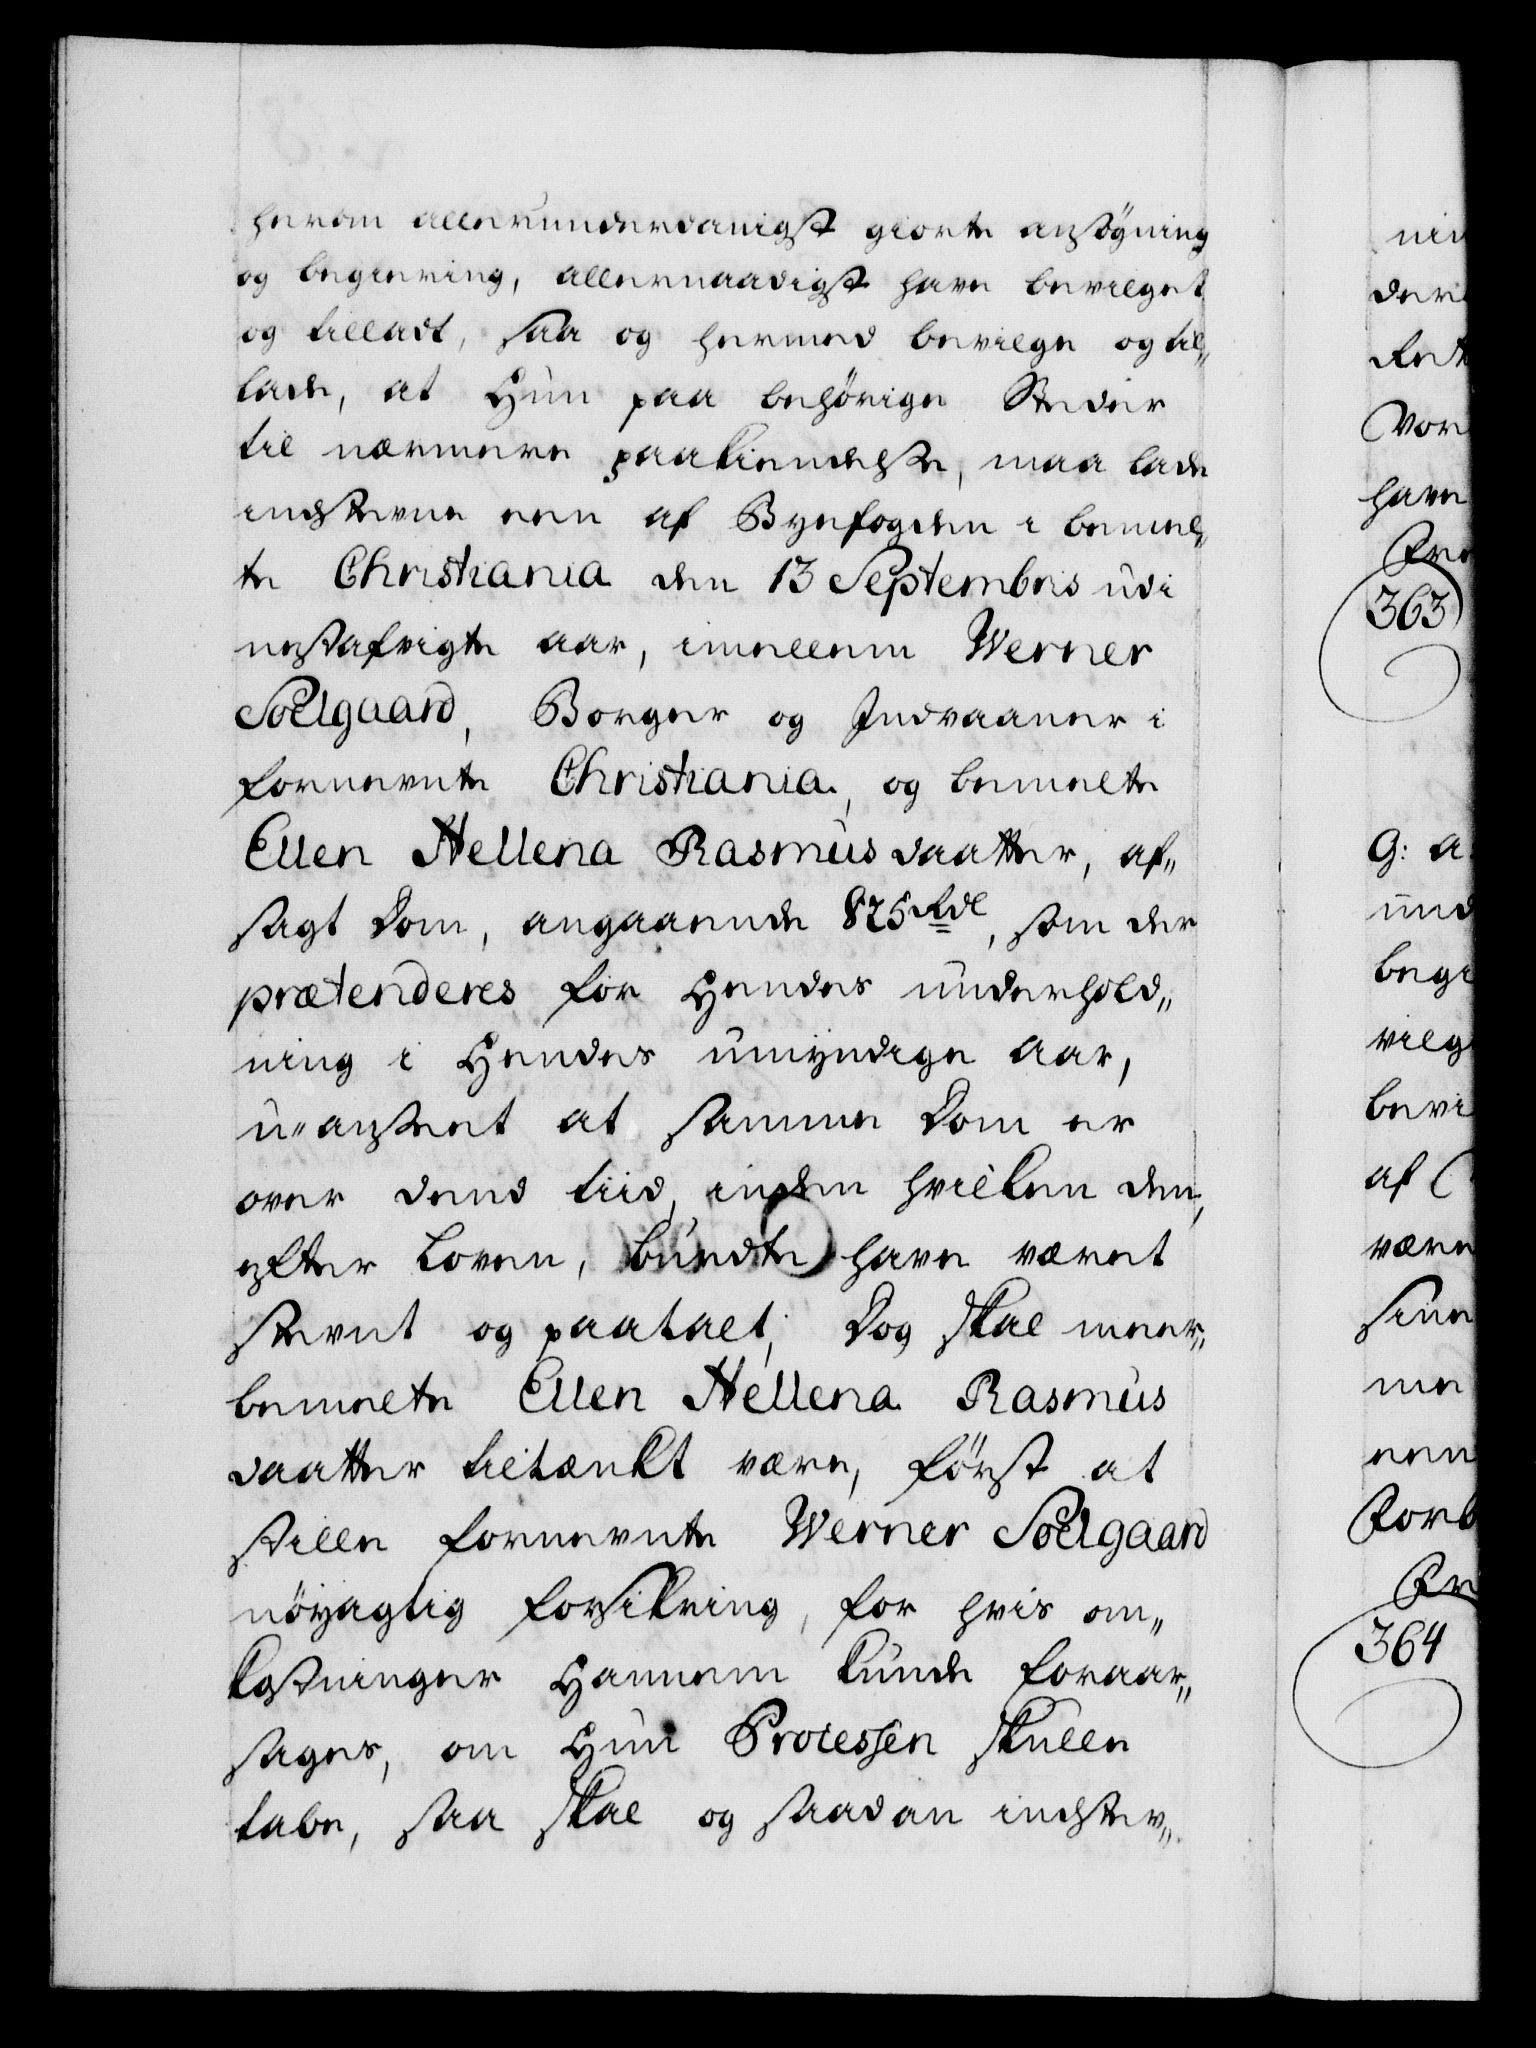 herom allerunderdanigst giorte ansøgning
og begiering, allernaadigst have bevilget
og tilladt, saa og hermed bevilge og til„
lade, at Hun paa behörige Steder
til nærmere paakiendelse, maa lade
indstevne een af Byefogden i bemel„
te Christiania den 13 Septembris udi
nestafvigte aar, imellem Werner
Soelgaard, Borger og Indvaaner i
fornevnte Christiania, og bemelte
Ellen Hellena Rasmus daatter, af„
sagt Dom, angaaende 825 Rdl, som der
prætenderes for Hendes underhold„
ning i Hendes umyndige Aar,
u-anseet at samme Dom er
over dend tiid, inden hvilken den,
efter Loven, burdte have været
stevnt og paatalt; Dog skal meer„
bemelte Ellen Hellena Rasmus
daatter tiltænkt være, först at
stille fornevnte Werner Soelgaard
nöyagtig forsikring, for hvis om„
kostninger Hannem kunde foraar„
sages, om Hun Processen skulle
tabe, saa skal og saadan indstev„
nin
der
Ret
Vor
have
363
G: a
und
begi
vilg
bevi
af
være
sine
me
een
Forb
364